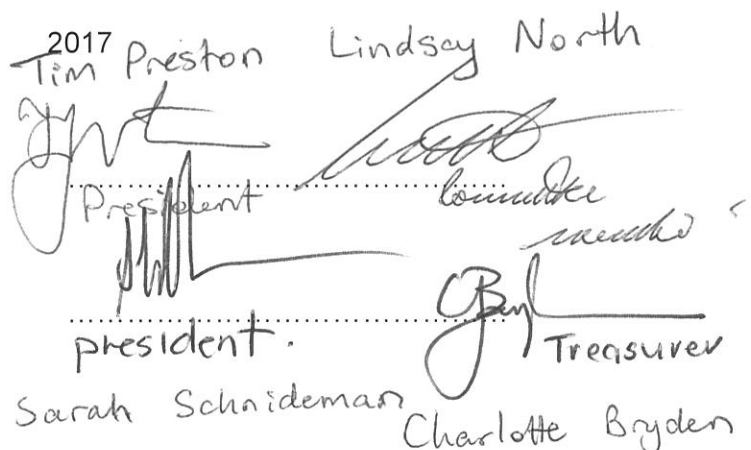 2017
Tim Preston
Lindsay North
President
Committee
member
president.
Treasurer
Sarah Schnideman
Charlotte Bryden